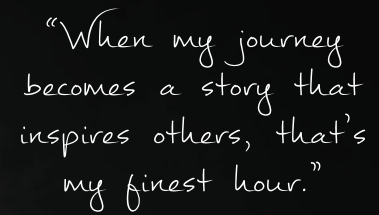 “When my journey
becomes a story that
inspires others, that’s
my finest hour.”